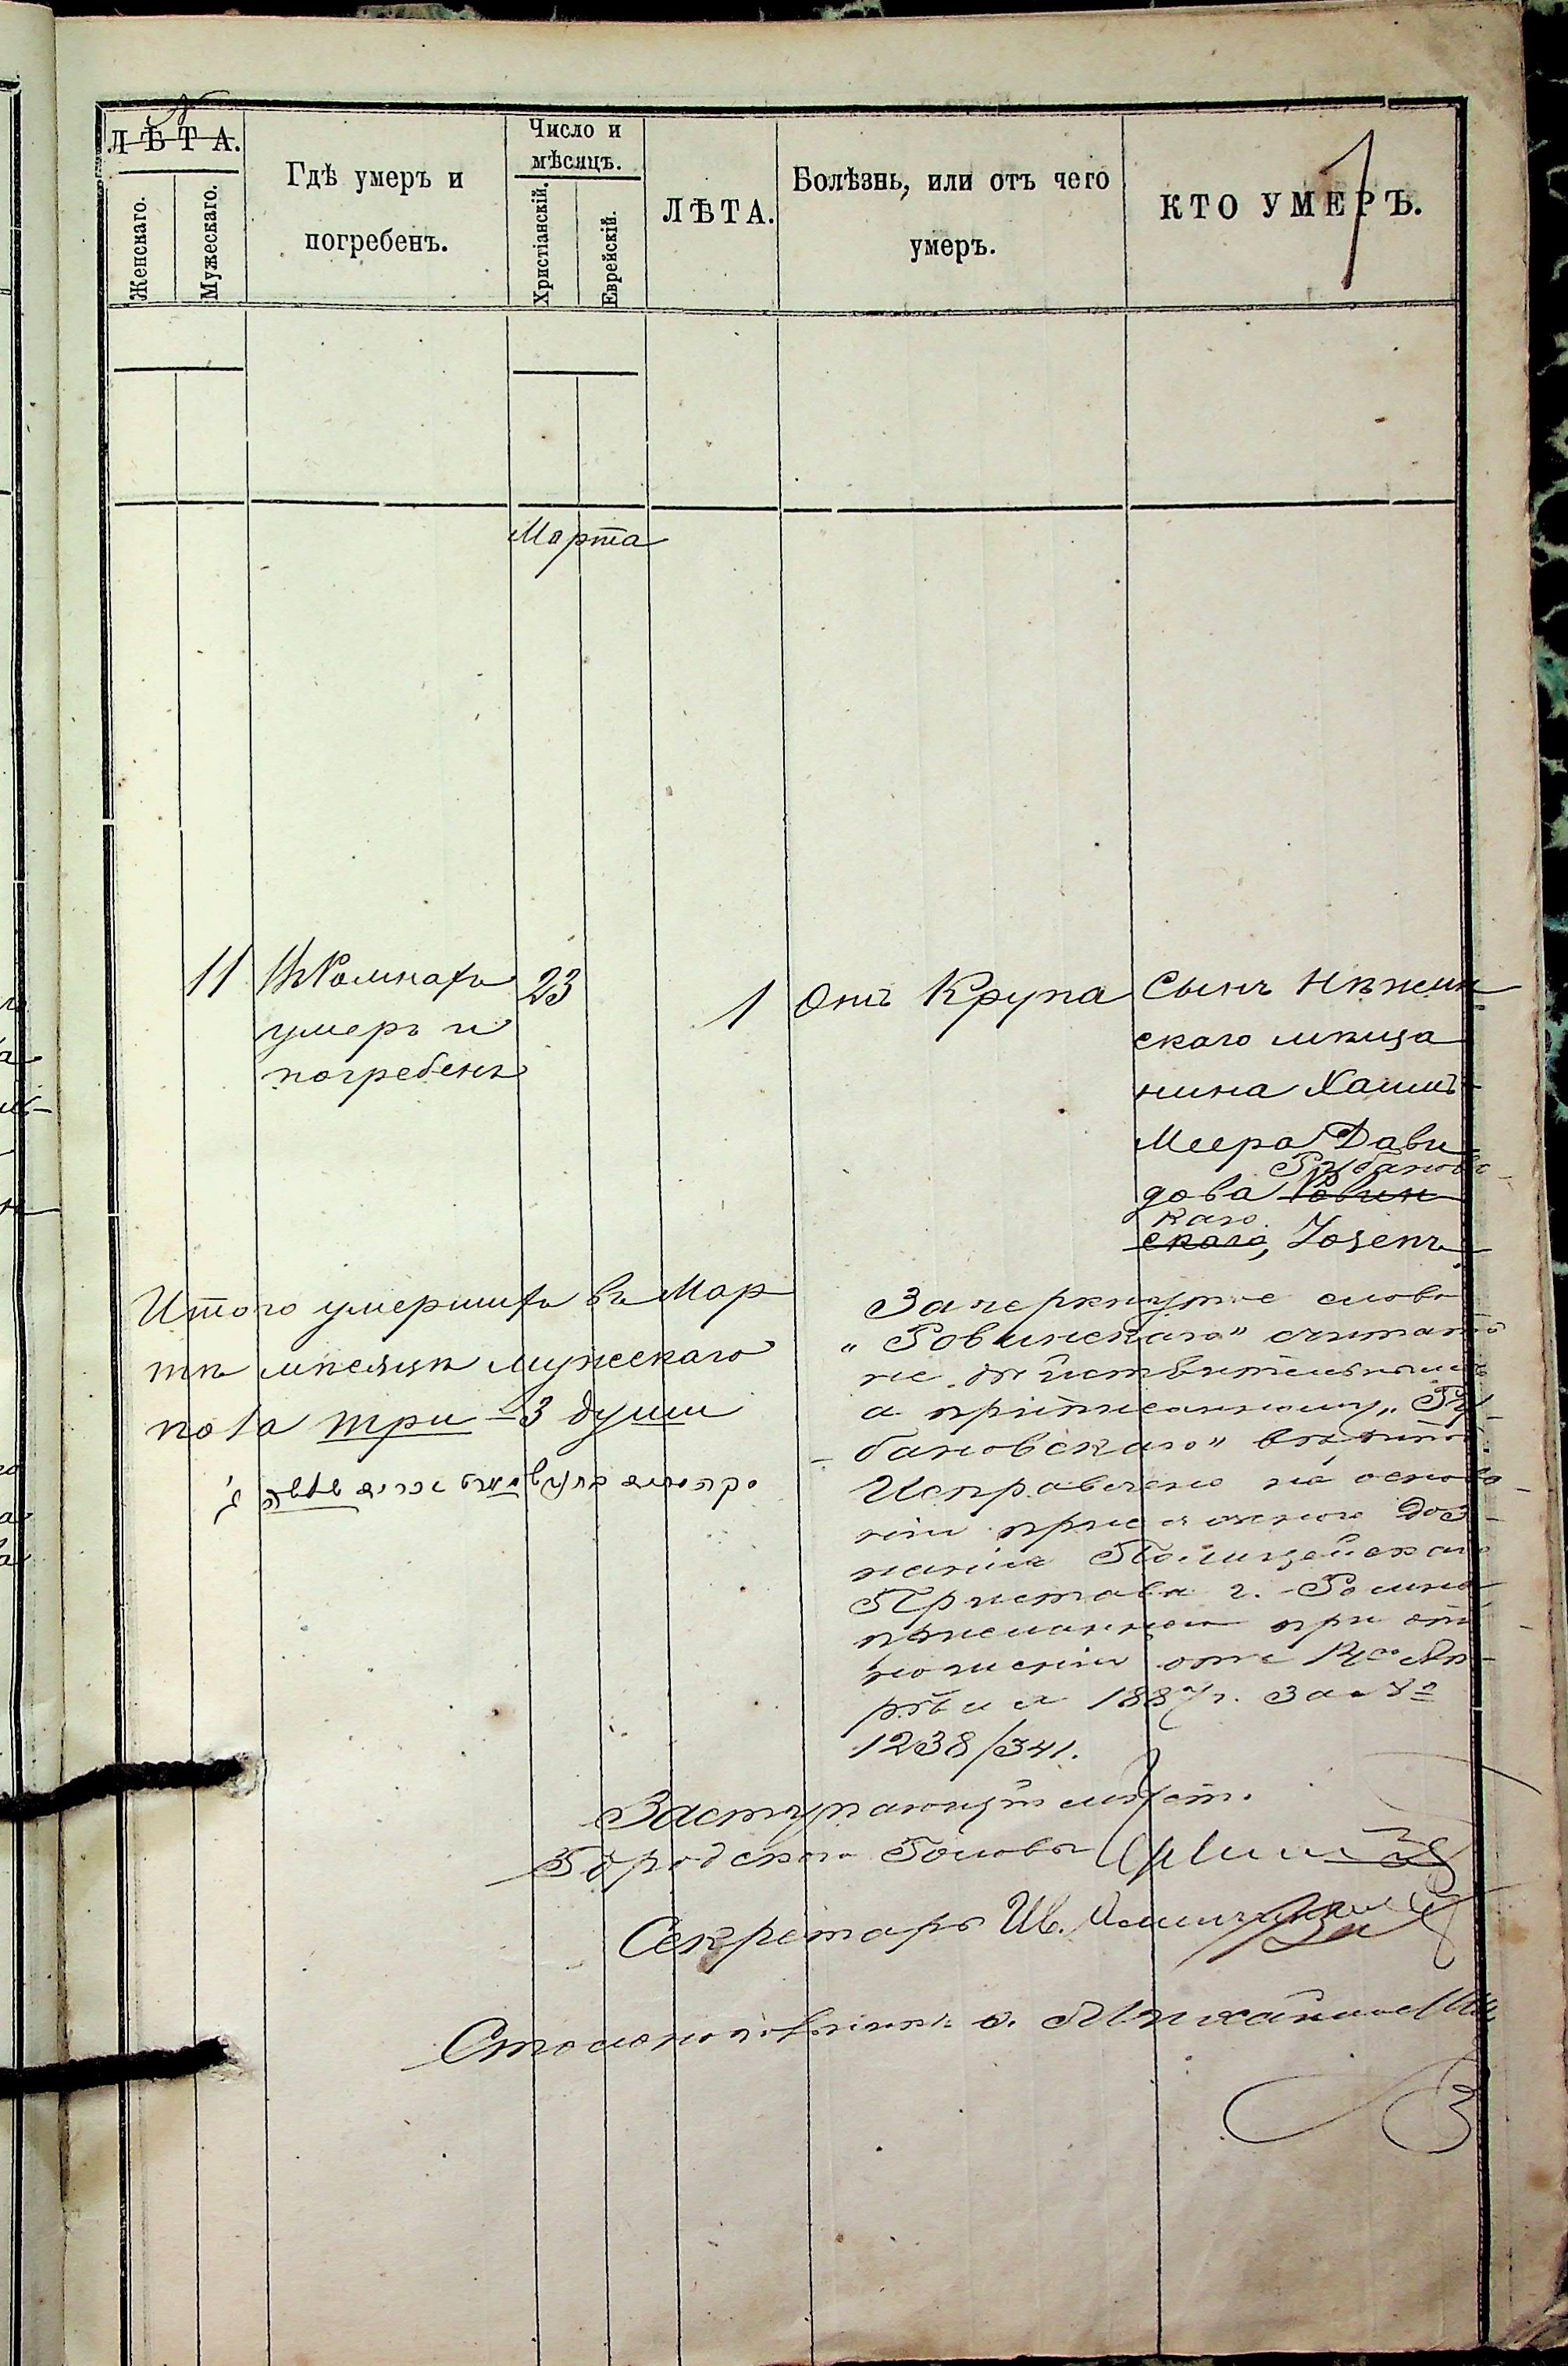 №
ЛѢТА.
Женскаго.
Мужескаго.
Гдѣ умеръ и
погребенъ.
Число и
мѣсяцъ.
Христіанскій.
Еврейскій.
ЛѢТА.
Болѣзнь, или отъ чего
умеръ.
КТО УМЕРЪ.
Марта
11
умеръ и
погребенъ
23
1
Отъ Крупа
Сынъ Нѣжин
скаго мѣща
нина Хаимъ
Меера Дави
дова Рубановс
каго
Ровин
скаго, Іозепъ
Итого умершихъ въ Мар
тѣ мѣсяцѣ мужескаго
пола три - 3 души
Зачеркнутое слово
"Ровинскаго" считать
не дѣйствительнымъ
а приписанному "Ру
бановскаго" вѣрить.
Исправлено на основа
ніи доз
нанія Полицейскаго
Пристава г. Ромна
при от
ношеніи отъ 14го Ап
рѣля 1887 г. за №
1238/341.
Заступающій мѣст.
Городского Головы
Секретарь Ив.
Столоначальникъ